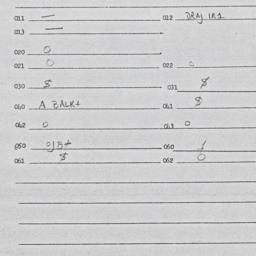 011 — 012 DRY 1R1
013 —
020 0
021 0 022 0
030 $ 031 $
040 A BALK+ 041 $
042 0 043 0
050 060
061 $ 062 0